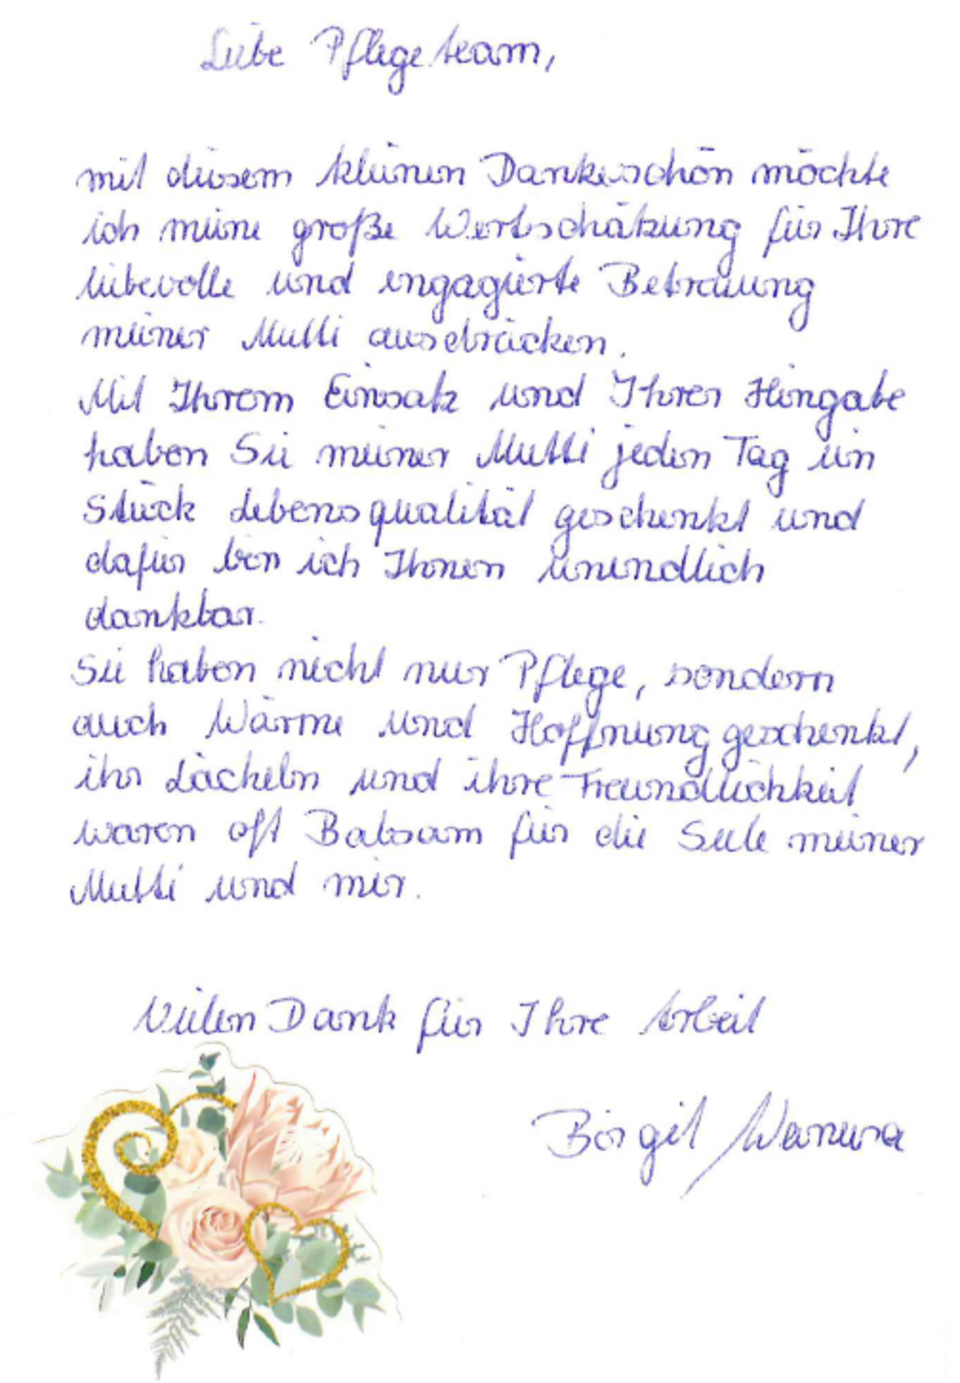 Liebe Pflegeteam,
mit diesem kleinen Dankeschön möchte
ich meine große Wertschätzung für Ihre
liebevolle und engagierte Betreuung
meiner Mutti ausdrücken.
Mit Ihrem Einsatz und Ihrer Hingabe
haben Sie meiner Mutti jeden Tag ein
Stück Lebensqualität geschenkt und
dafür bin ich Ihnen unendlich
dankbar.
Sie haben nicht nur Pflege, sondern
auch Wärme und Hoffnung geschenkt,
ihr Lächeln und ihre Freundlichkeit
waren oft Balsam für die Seele meiner
Mutti und mir.
Vielen Dank für Ihre Arbeit
Birgit